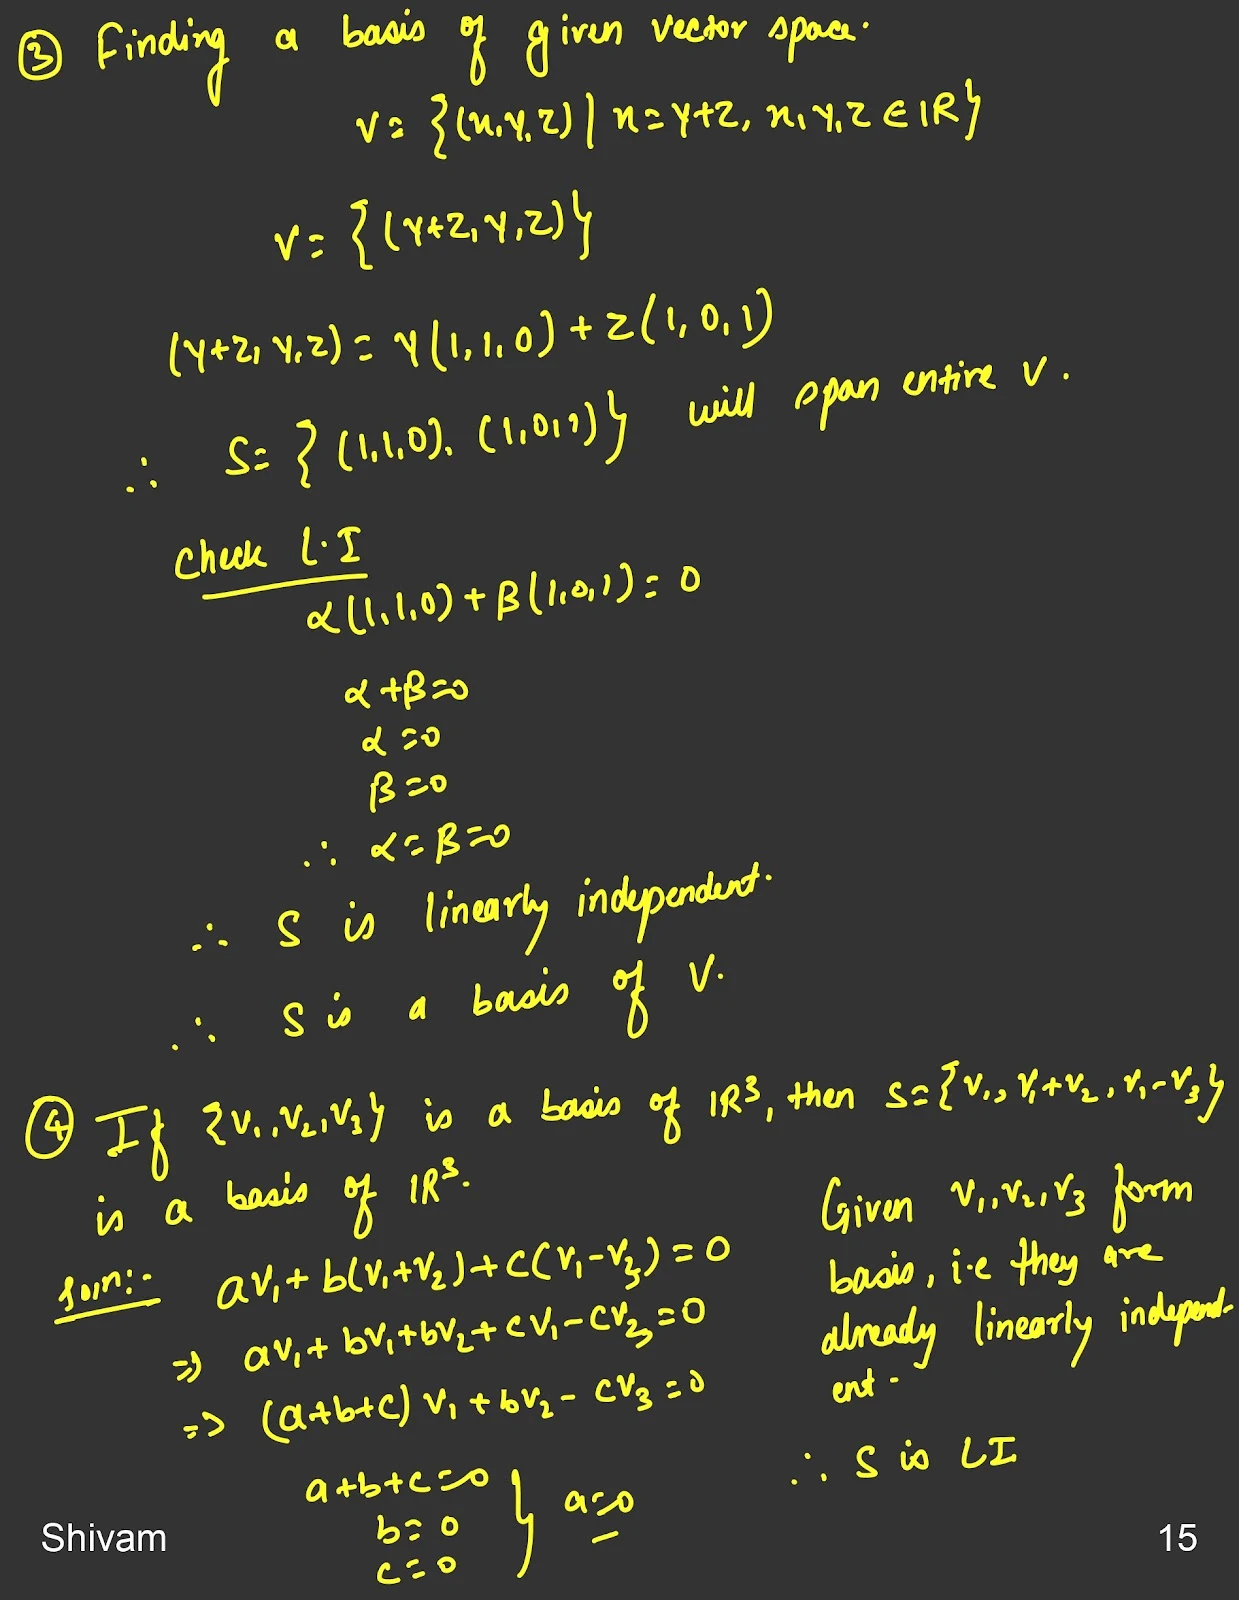 ③ Finding a basis of given vector space.
V = {(x,y,z) | x = y+z, x,y,z ∈ IR}
V = {(y+z, y, z)}
(y+z, y, z) = y(1,1,0) + z(1,0,1)
∴ S = {(1,1,0), (1,0,1)} will span entire V.
Check L.I
α(1,1,0) + β(1,0,1) = 0
α+β=0
α=0
β=0
∴ α=β=0
∴ S is linearly independent.
∴ S is a basis of V.
④ If {v₁,v₂,v₃} is a basis of IR³, then S={v₁, v₁+v₂, v₁-v₃}
is a basis of IR³.
soln:- av₁ + b(v₁+v₂) + c(v₁-v₃) = 0
=> av₁ + bv₁ + bv₂ + cv₁ - cv₃ = 0
=> (a+b+c) v₁ + bv₂ - cv₃ = 0
a+b+c=0
b=0
c=0 } a=0
Given v₁,v₂,v₃ form
basis, i.e they are
already linearly independ-
ent.
∴ S is LI
Shivam
15